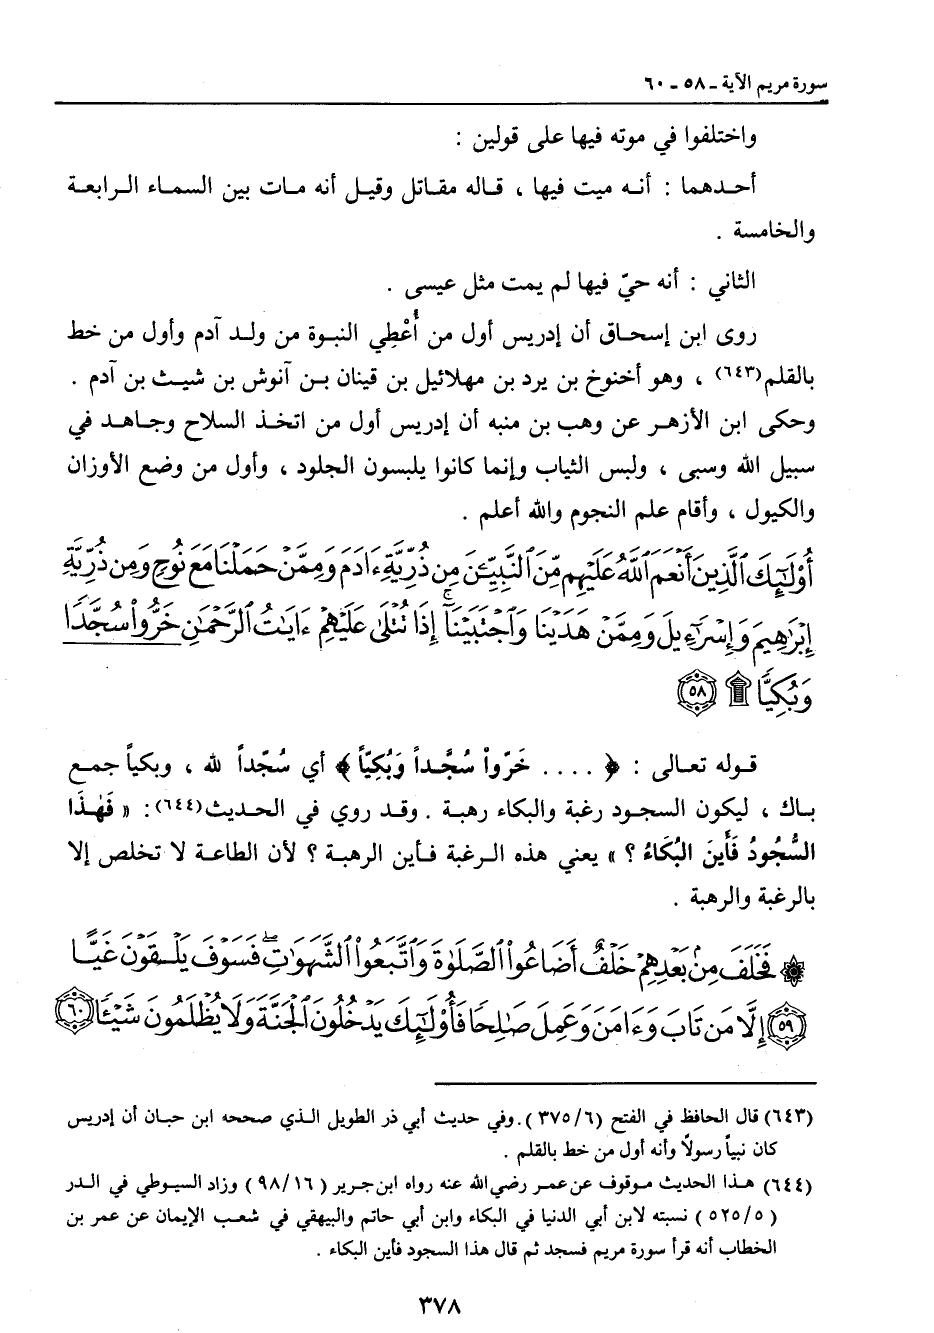 سورة مريم الآية ـ ٥٨ ـ ٦٠
واختلفوا في موته فيها على قولين :
أحـدهمـا : أنـه ميت فيهـا ، قـاله مقـاتل وقيـل أنـه مـات بين السمـاء الـرابعـة
والخامسة .
الثاني : أنه حيّ فيها لم يمت مثل عيسى .
روى ابن إسحـاق أن إدريس أول من أُعْطِي النبـوة من ولـد آدم وأول من خط
بالقلم(٦٤٣) ، وهو أخنوخ بن يرد بن مهلائيل بن قينان بـن آنوش بن شيـث بن آدم .
وحكى ابن الأزهـر عن وهب بن منبه أن إدريس أول من اتخـذ السلاح وجـاهـد في
سبيل الله وسبى ، ولبس الثياب وإنما كانوا يلبسون الجلود ، وأول من وضع الأوزان
والكيول ، وأقام علم النجوم والله أعلم .
أُوْلَٰٓئِكَ ٱلَّذِينَ أَنْعَمَ ٱللَّهُ عَلَيْهِم مِّنَ ٱلنَّبِيِّـۧنَ مِن ذُرِّيَّةِ ءَادَمَ وَمِمَّنْ حَمَلْنَا مَعَ نُوحٍ وَمِن ذُرِّيَّةِ
إِبْرَٰهِيمَ وَإِسْرَٰٓءِيلَ وَمِمَّنْ هَدَيْنَا وَٱجْتَبَيْنَآ ۚ إِذَا تُتْلَىٰ عَلَيْهِمْ ءَايَٰتُ ٱلرَّحْمَٰنِ خَرُّوا۟ سُجَّدًا
وَبُكِيًّا ۩ ٥٨
قـوله تعـالى : ﴿ . . . . خَرّواْ سُجَّـداً وَبُكِيّاً ﴾ أي سُجّـداً لله ، وبكيـاً جمـع
بـاك ، ليكون السجـود رغبة والبكاء رهبـة . وقـد روي في الحـديث(٦٤٤): « فَهٰـذَا
السُّجُودُ فَأَينَ البُكَاءُ ؟ » يعني هذه الـرغبة فـأين الرهبـة ؟ لأن الطاعـة لا تخلص إلا
بالرغبة والرهبة .
۞ فَخَلَفَ مِنۢ بَعْدِهِمْ خَلْفٌ أَضَاعُوا۟ ٱلصَّلَوٰةَ وَٱتَّبَعُوا۟ ٱلشَّهَوَٰتِ ۖ فَسَوْفَ يَلْقَوْنَ غَيًّا
٥٩ إِلَّا مَن تَابَ وَءَامَنَ وَعَمِلَ صَٰلِحًا فَأُو۟لَٰٓئِكَ يَدْخُلُونَ ٱلْجَنَّةَ وَلَا يُظْلَمُونَ شَيْـًٔا ٦٠
(٦٤٣) قال الحافظ في الفتح (٦/ ٣٧٥). وفي حديث أبي ذر الطويل الـذي صححه ابن حبـان أن إدريس
كان نبياً رسولاً وأنه أول من خط بالقلم .
(٦٤٤) هـذا الحديث مـوقوف عن عمـر رضي الله عنه رواه ابن جـرير (١٦/ ٩٨) وزاد السيـوطي في الـدر
(٥/ ٥٢٥) نسبته لابن أبي الدنيا في البكاء وابن أبي حاتم والبيهقي في شعب الإيمان عن عمر بن
الخطاب أنه قرأ سورة مريم فسجد ثم قال هذا السجود فأين البكاء .
٣٧٨